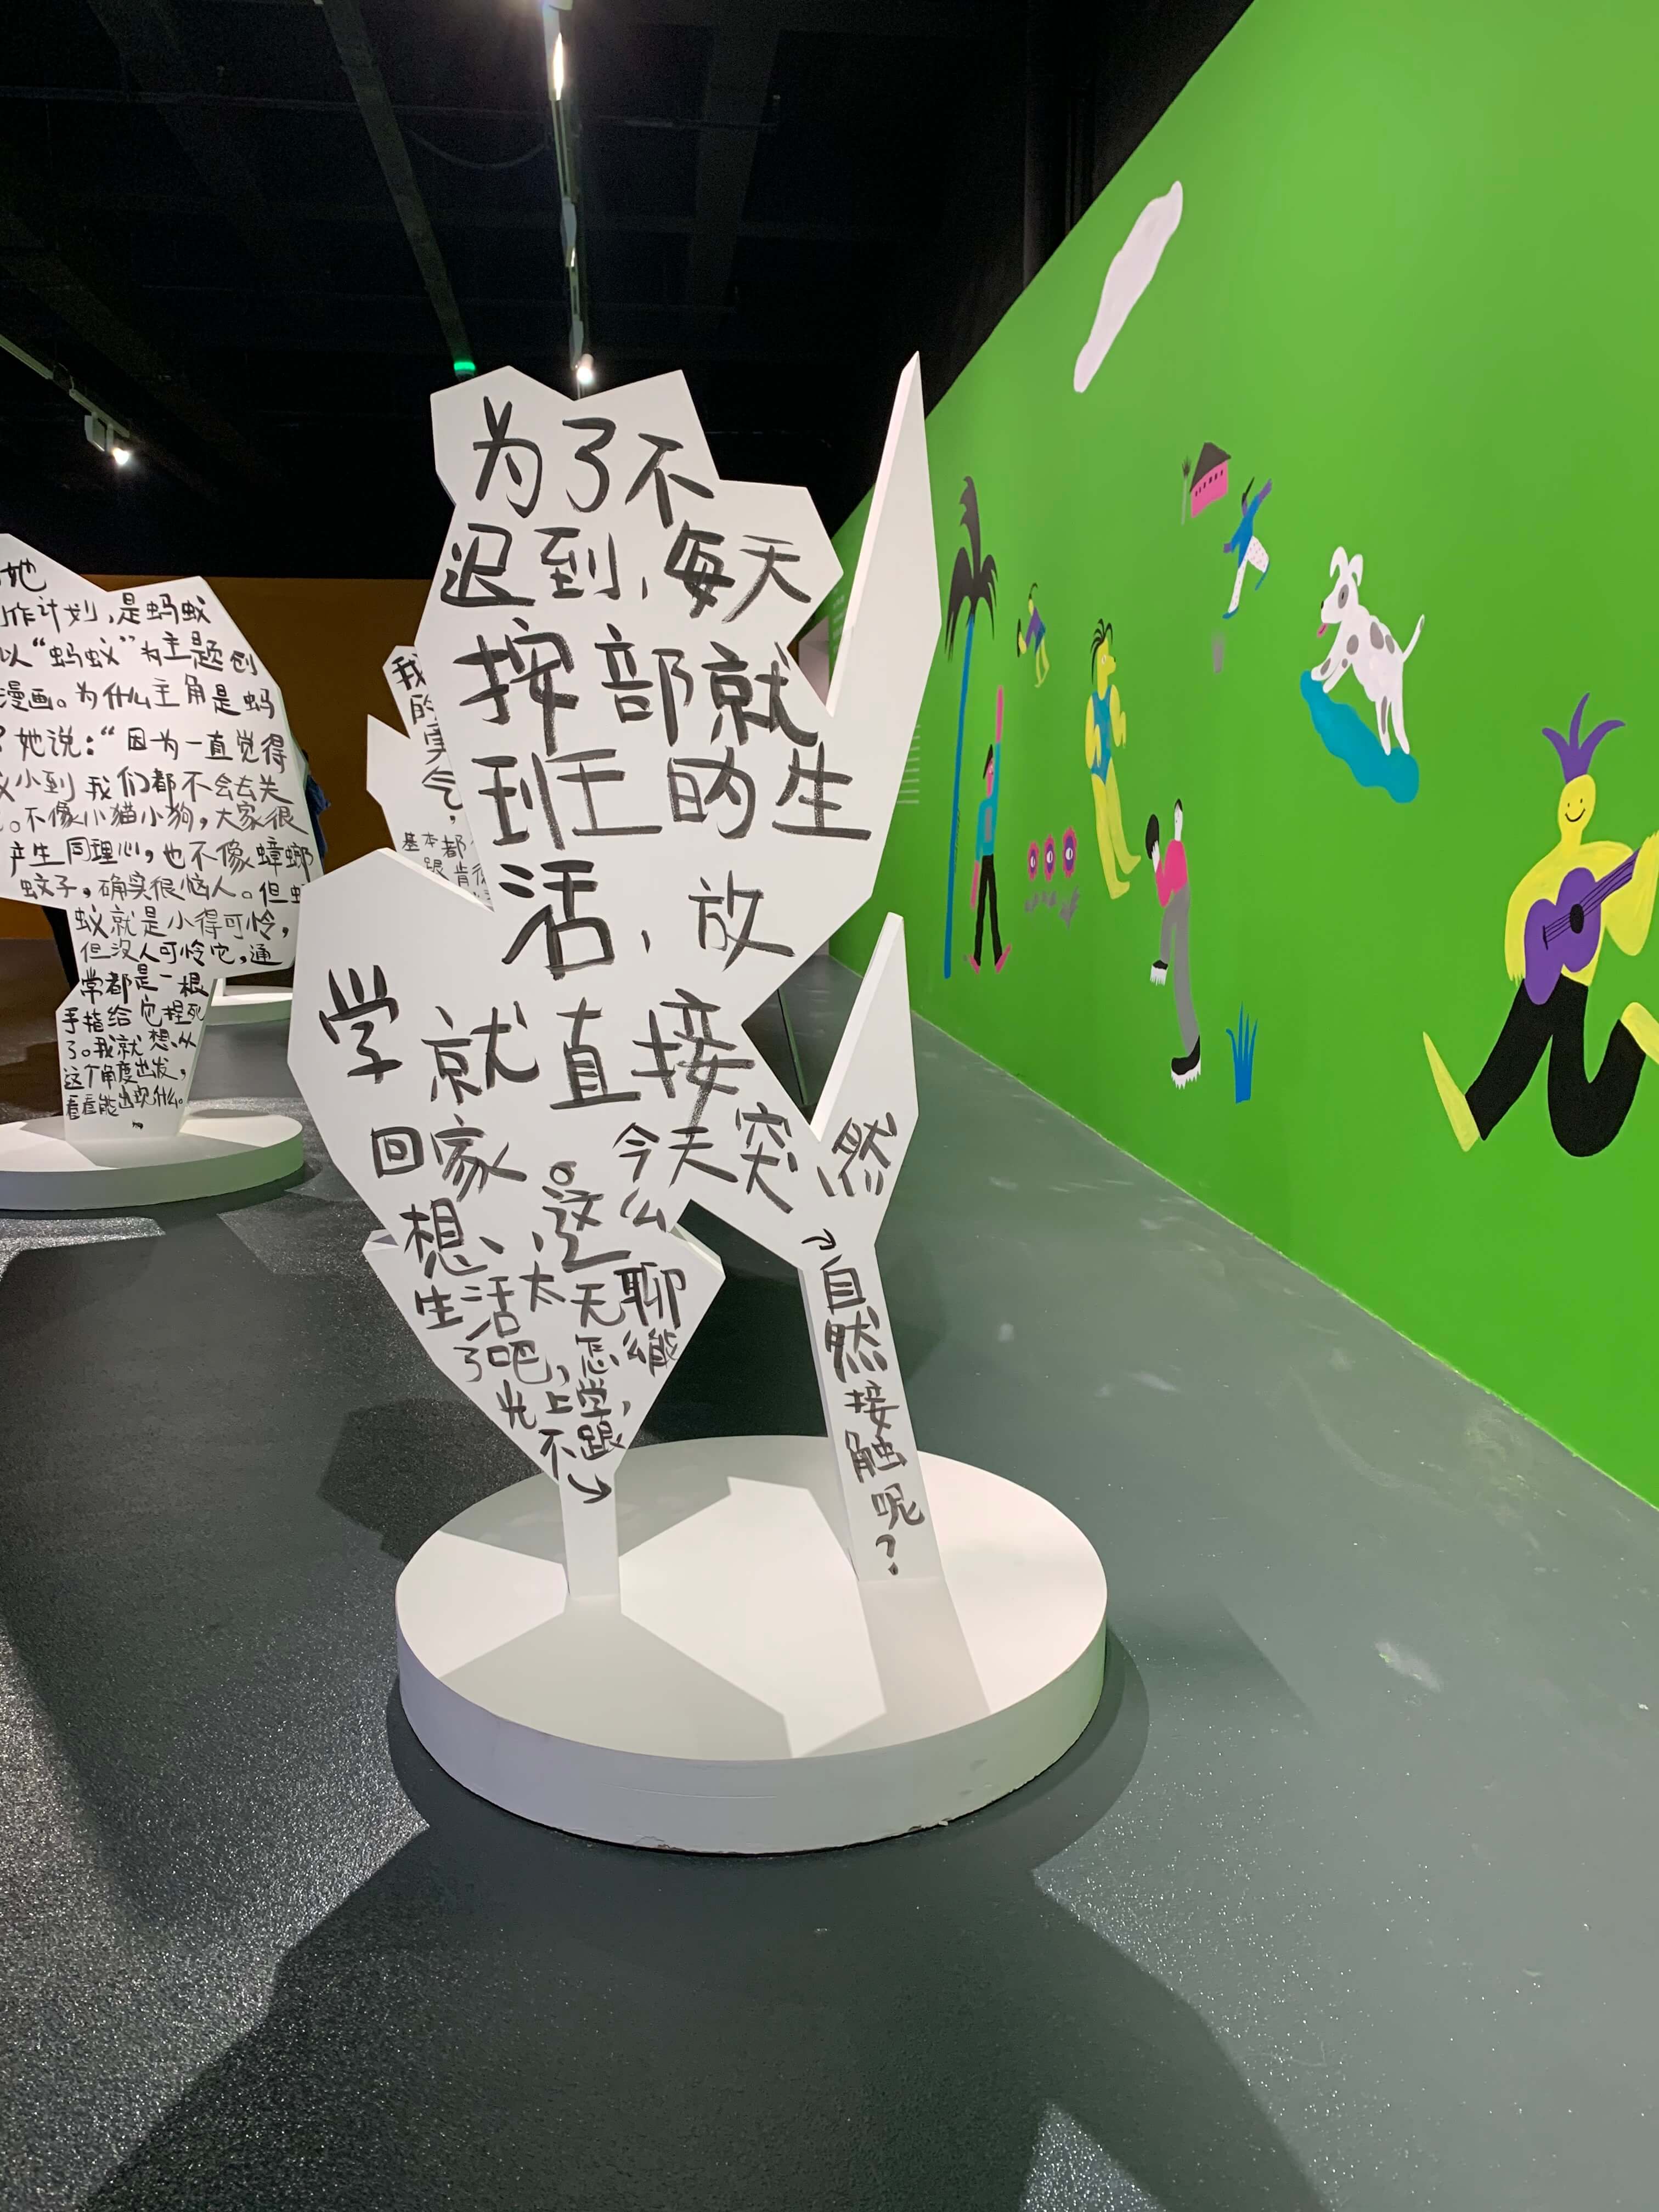 她
作计划,是蚂蚁
以“蚂蚁”为主题创
漫画。为什么主角是蚂
?她说:“因为一直觉得
小到我们都不会去关
。不像小猫小狗,大家很
产生同理心,也不像蟑螂
蚊子,确实很恼人。但
蚁就是小得可怜,
但没人可怜它,通
常都是一根
手指给它捏死
了。我就想,从
这个角度出发,
看看能出现什么。
我
的
气,
基本都
跟肯
为了不
迟到,每天
按部就
班的生
活,放
学就直接
回家。今天突然
想、这么
生活太无聊
了吧,怎么能
光上学,
不跟→
→自然接触呢?